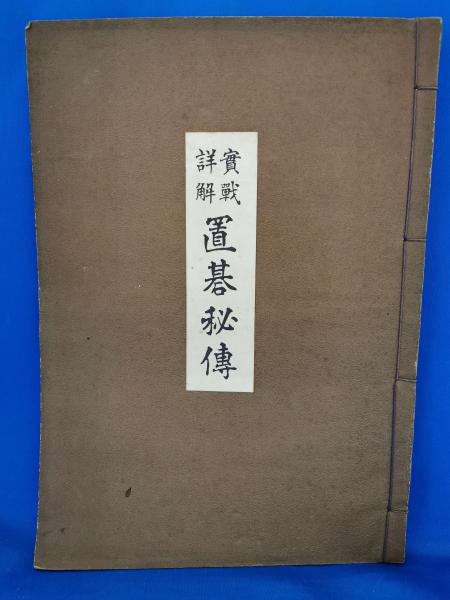 實戰
詳解
置碁秘傳